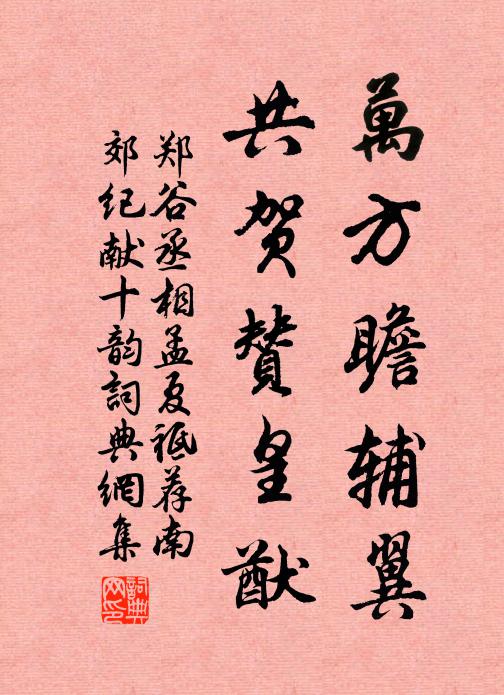 萬方瞻辅翼
共贺贊皇猷
郑谷丞相孟夏祗荐南
郊纪献十韵詞典網集
詞典網印